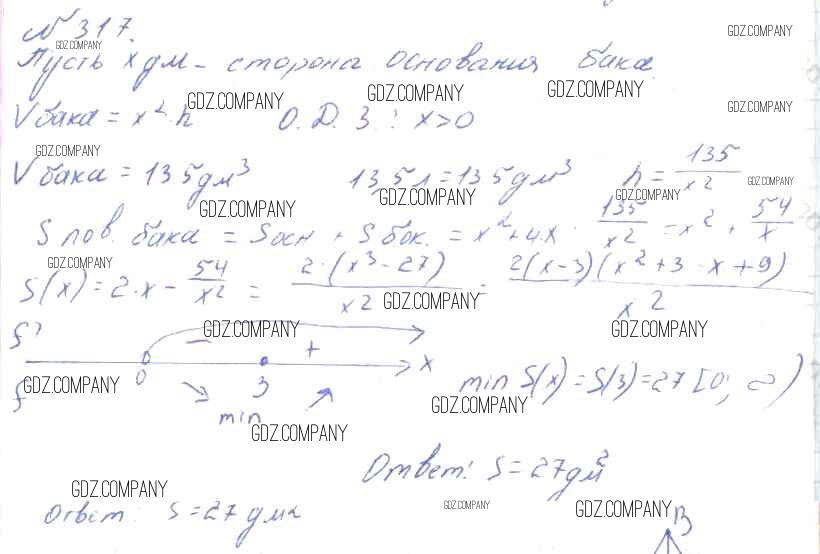 № 317.
GDZ.COMPANY
GDZ.COMPANY
Пусть x дм - сторона основания бака
GDZ.COMPANY GDZ.COMPANY GDZ.COMPANY
V бака = x² · h О. Д. З.: x>0
GDZ.COMPANY
GDZ.COMPANY
V бака = 135 дм³ 13,5 л = 13 5 дм³ h = 135/x²
GDZ.COMPANY GDZ.COMPANY GDZ.COMPANY GDZ.COMPANY
S пов. бака = Sосн + S бок. = x² + 4x · 135/x² = x² + 54/x
GDZ.COMPANY
S(x) = 2·x - 54/x² = 2·(x³-27)/x² = 2(x-3)(x²+3·x+9)/x²
GDZ.COMPANY
f' − + GDZ.COMPANY GDZ.COMPANY
0 3 x
GDZ.COMPANY
f min min S(x) = S(3) = 27 [0; ∞)
GDZ.COMPANY GDZ.COMPANY
Ответ: S = 27 дм²
GDZ.COMPANY GDZ.COMPANY GDZ.COMPANY
Ответ: S = 27 дм² B